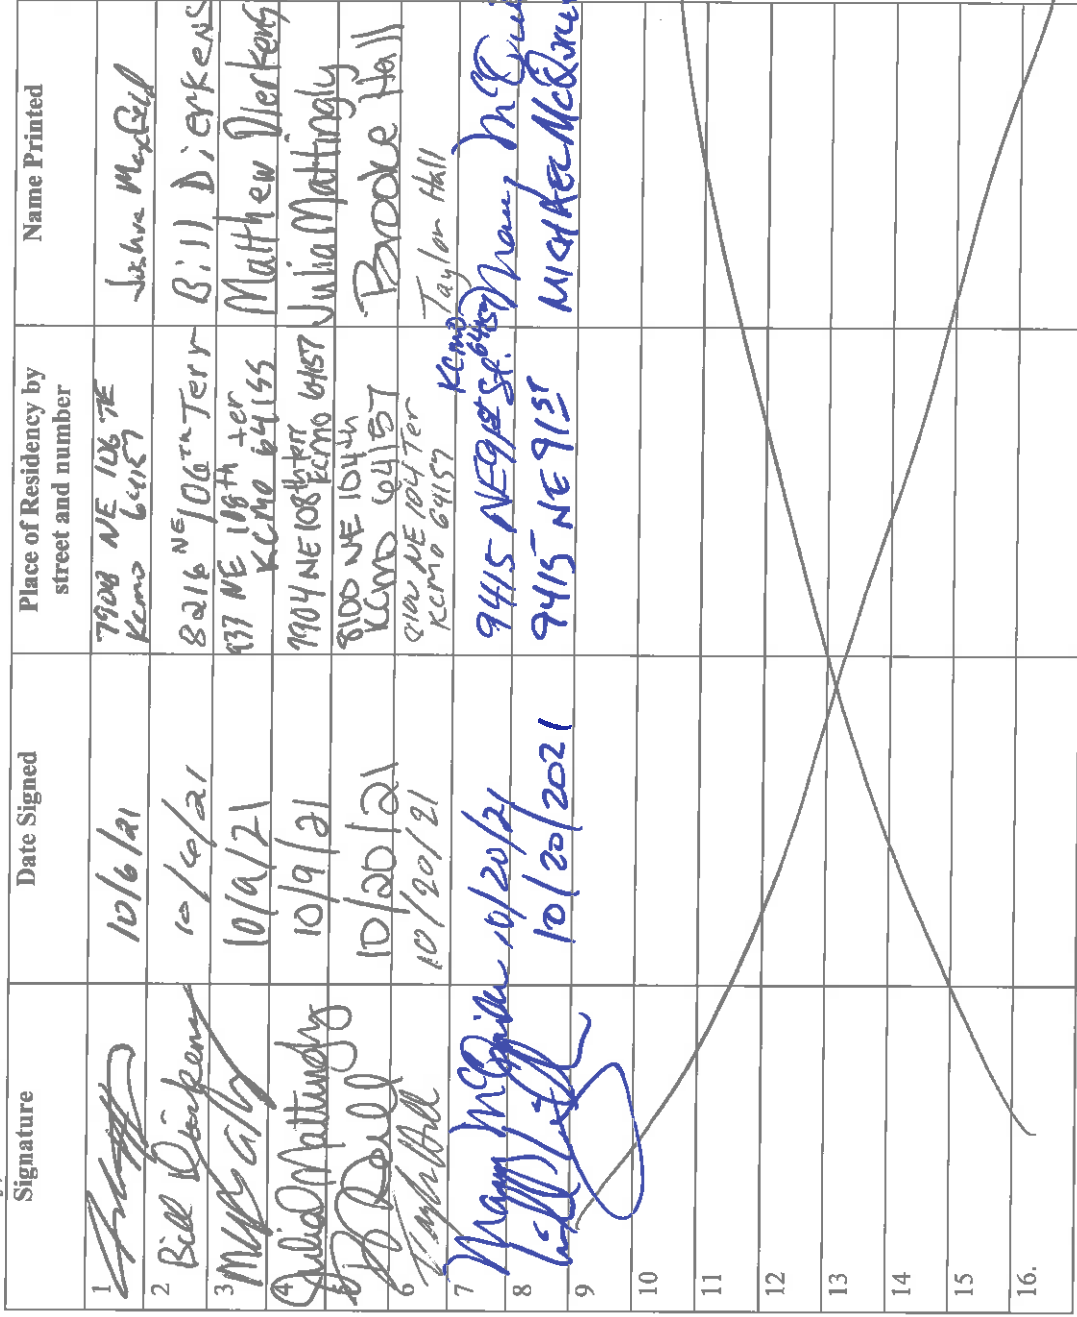 Signature Date Signed Place of Residency by street and number Name Printed
1 10/6/21 7908 NE 106 TE Kcmo 64157 Joshua Maxfield
2 Bill Dierkens 10/6/21 8216 NE 106th Terr Bill Dierkens
3 10/9/21 937 NE 108th ter KCMO 64155 Matthew Dierkens
4 Julia Mattingly 10/9/21 7904 NE 108th terr KCMO 64157 Julia Mattingly
5 10/20/21 8100 NE 104th KCMO 64157 Brooke Hall
6 Taylor Hall 10/20/21 8100 NE 104 Ter Kcmo 64157 Taylor Hall
7 Mary 10/20/21 9415 NE 91st St. KCMO 64157 Mary
8 10/20/2021 9415 NE 91ST MICHAEL
9
10
11
12
13
14
15
16.